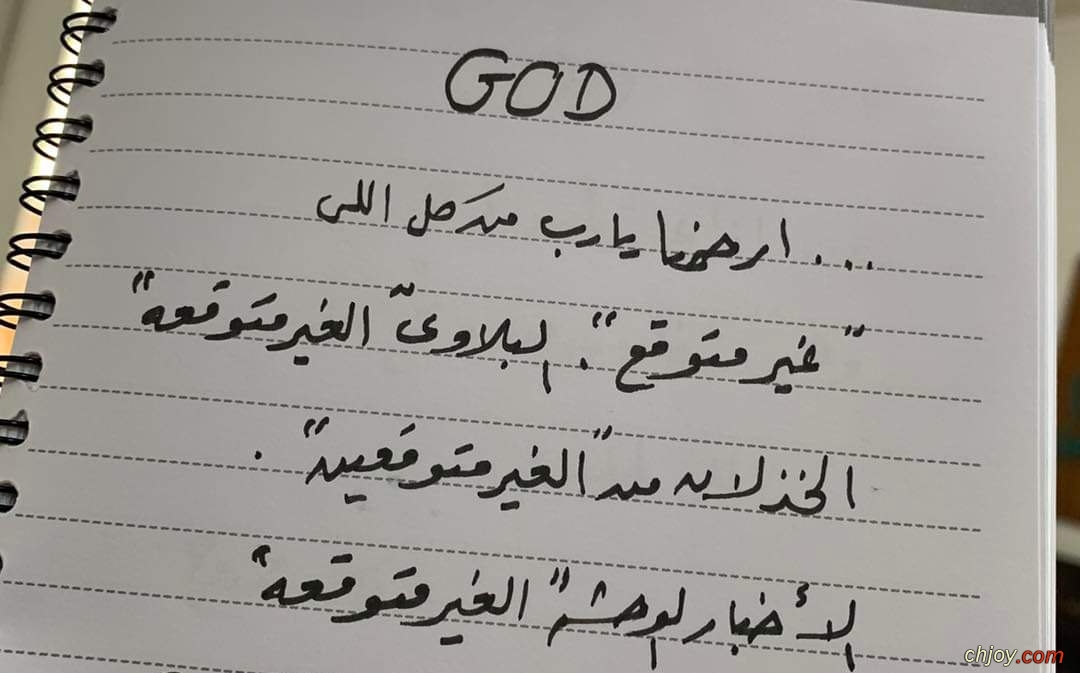 GOD
... ارحمنا يارب من كل اللى
"غير متوقع". البلاوى "الغير متوقعه"
الخذلان من "الغير متوقعين".
الأخبار الوحشه "الغير متوقعه"
chjoy.com